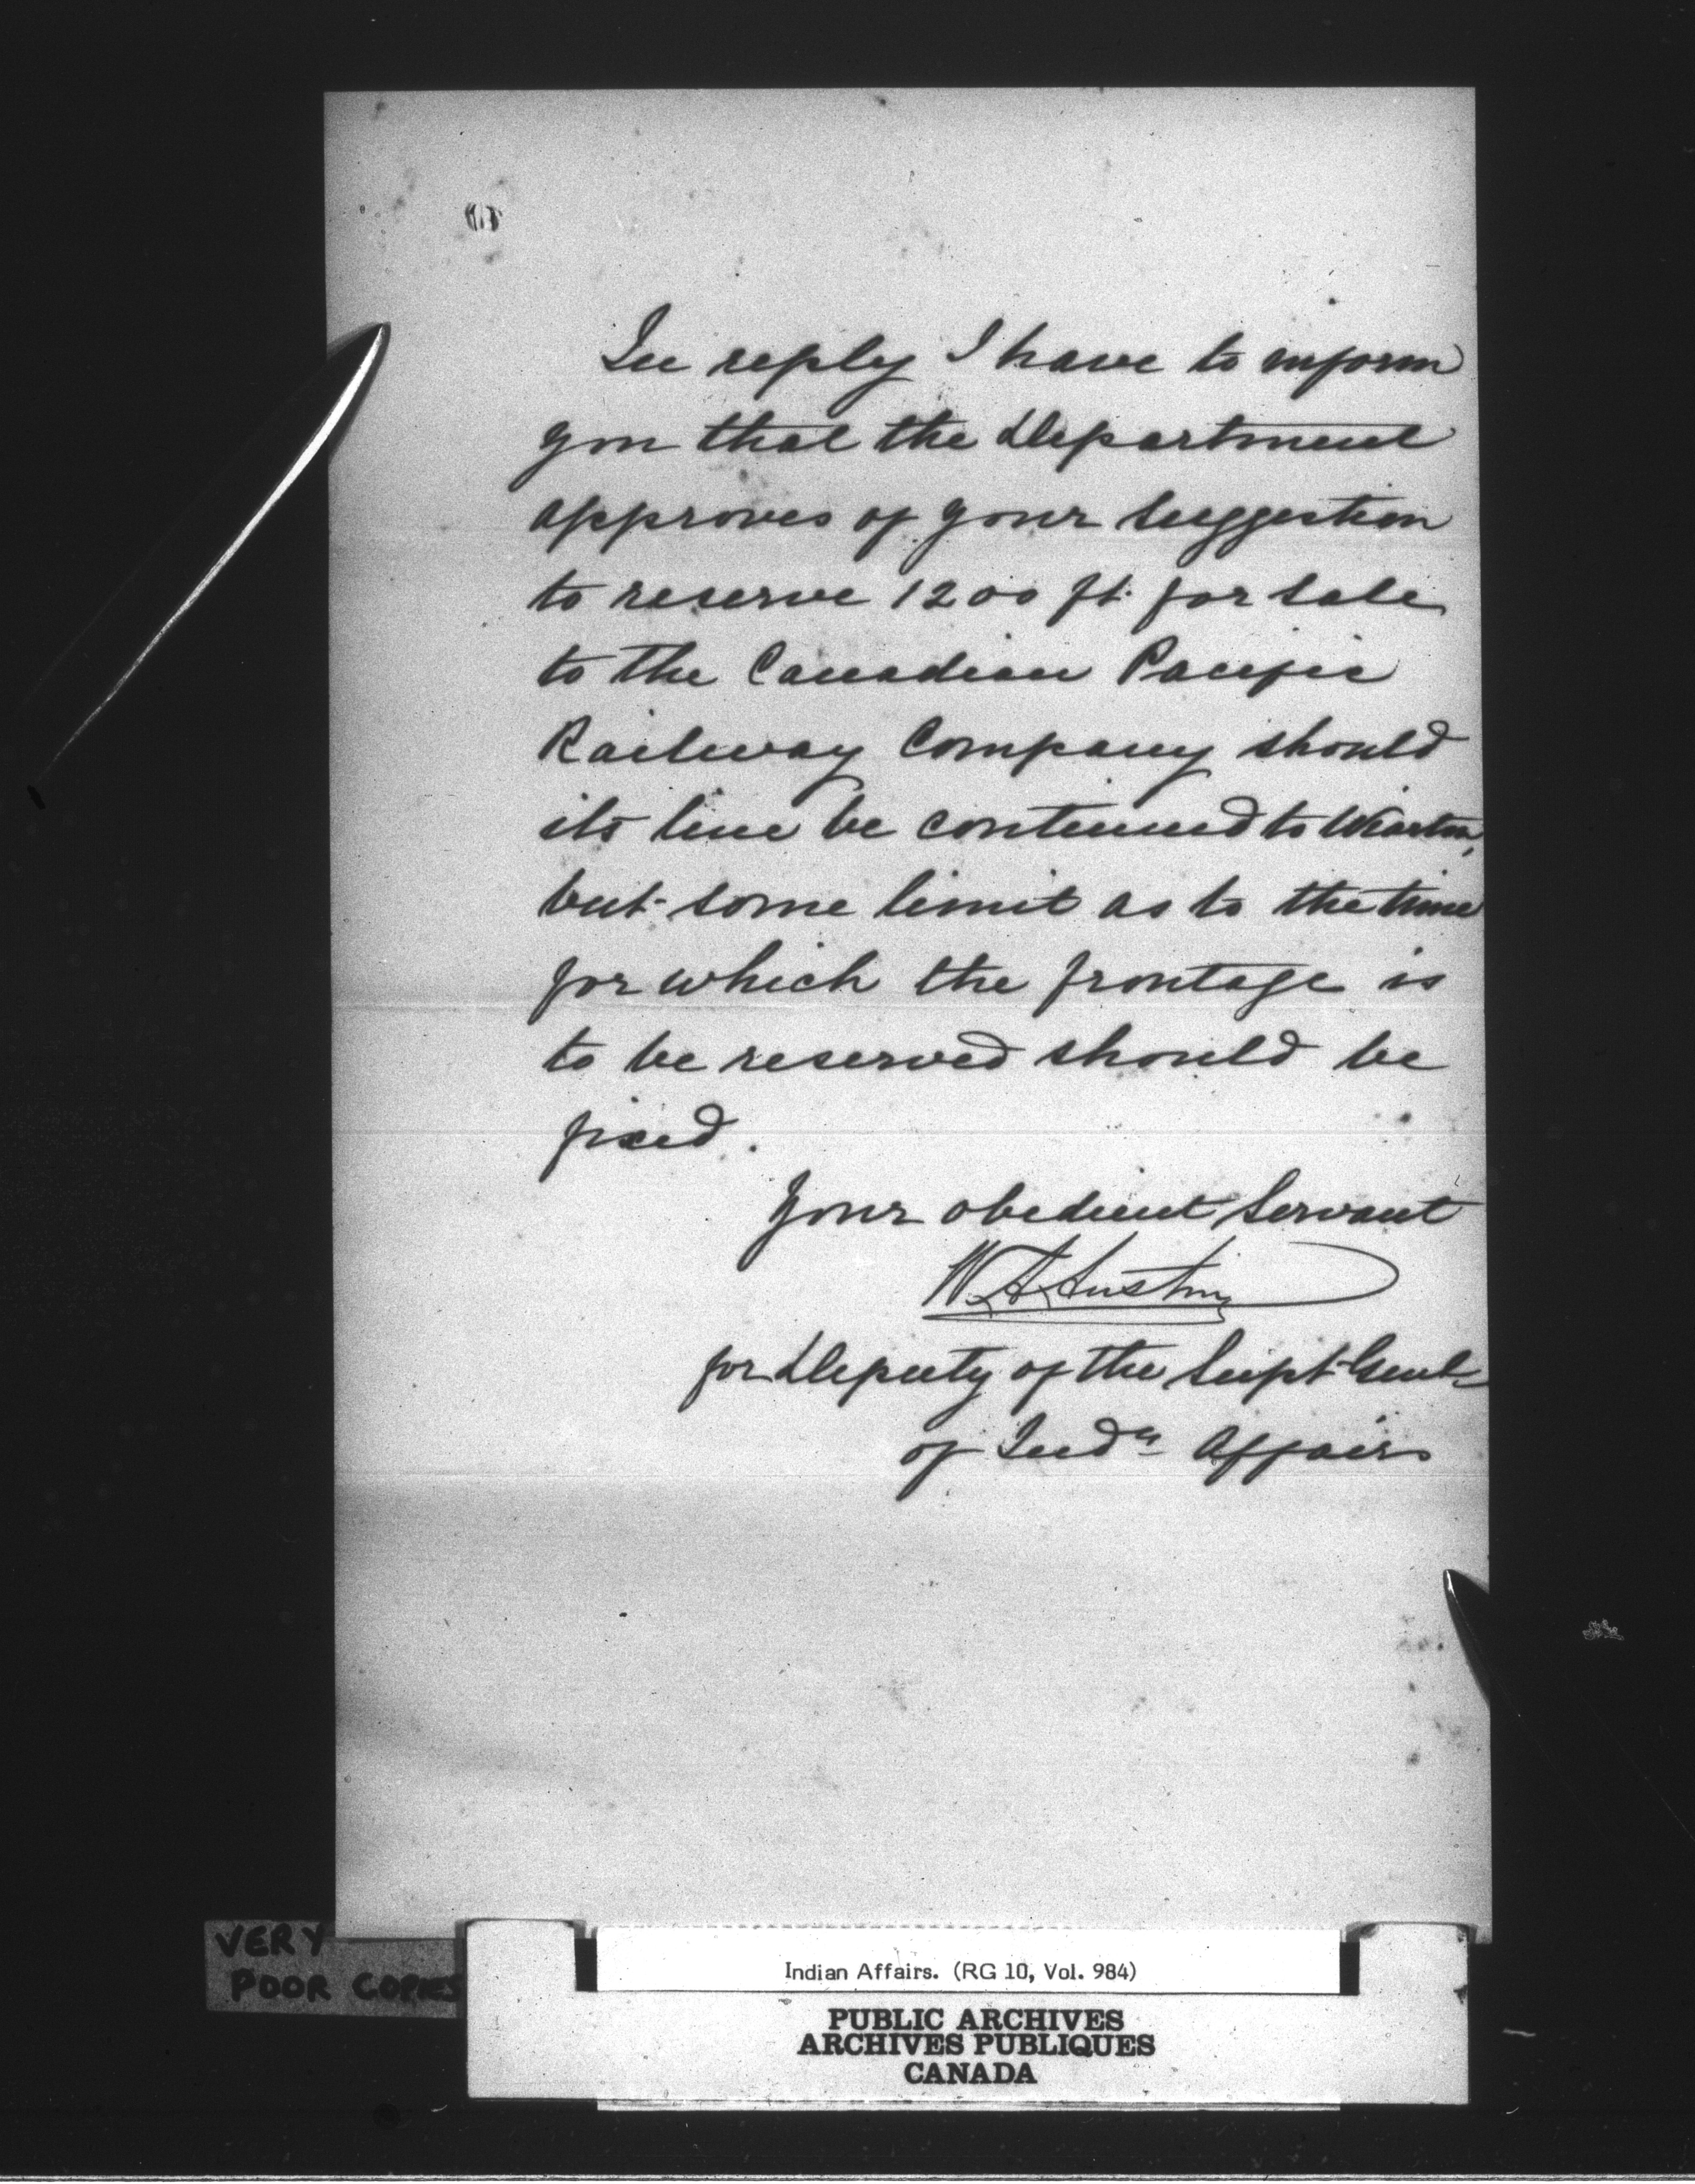 In reply I have to inform
you that the Department
approves of your suggestion
to reserve 1200 ft. for sale
to the Canadian Pacific
Railway Company should
its line be continued to Wiarton,
but some limit as to the time
for which the frontage is
to be reserved should be
fixed.
Your obedient Servant
W A Austin
for Deputy of the Supt Genl
of Indn Affairs
VERY
POOR COPIES
Indian Affairs. (RG 10, Vol. 984)
PUBLIC ARCHIVES
ARCHIVES PUBLIQUES
CANADA